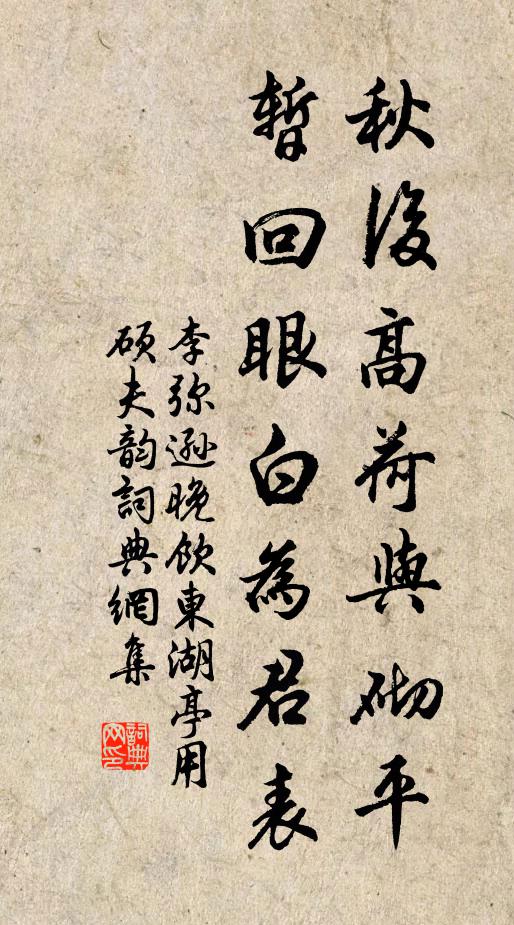 秋後高荷與砌平
暫回眼白為君表
李弥遜晚飲東湖亭用
碩夫韵詞典網集
詞典
网印